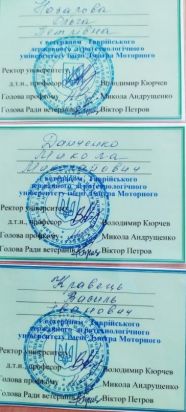 Ковалова
Ольга
Петрівна
є ветераном Таврійського
державного агротехнологічного
університету імені Дмитра Моторного
Ректор університету
д.т.н., професор Володимир Кюрчев
Голова профкому Микола Андрущенко
Голова Ради ветеранів Віктор Петров
Данченко
Микола
є ветераном Таврійського
державного агротехнологічного
університету імені Дмитра Моторного
Ректор університету
д.т.н., професор Володимир Кюрчев
Голова профкому Микола Андрущенко
Голова Ради ветеранів Віктор Петров
Кравець
Василь
Іванович
є ветераном Таврійського
державного агротехнологічного
університету імені Дмитра Моторного
Ректор університету
д.т.н., професор Володимир Кюрчев
Голова профкому Микола Андрущенко
Голова Ради ветеранів Віктор Петров